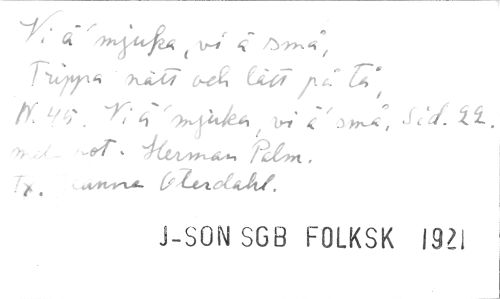 Vi ä' mjuka, vi ä små,
Trippa nätt och lätt på tå,
N. 45. Vi ä' mjuka, vi ä' små, Sid. 22.
not. Herman Palm.
Tx. Oterdahl.
J-SON SGB FOLKSK 1921